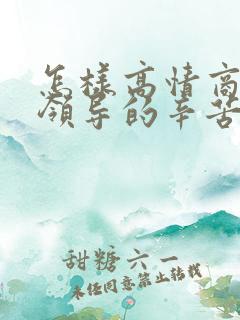 怎样高情商
领导的辛苦
甜糖六一
未经同意禁止转载